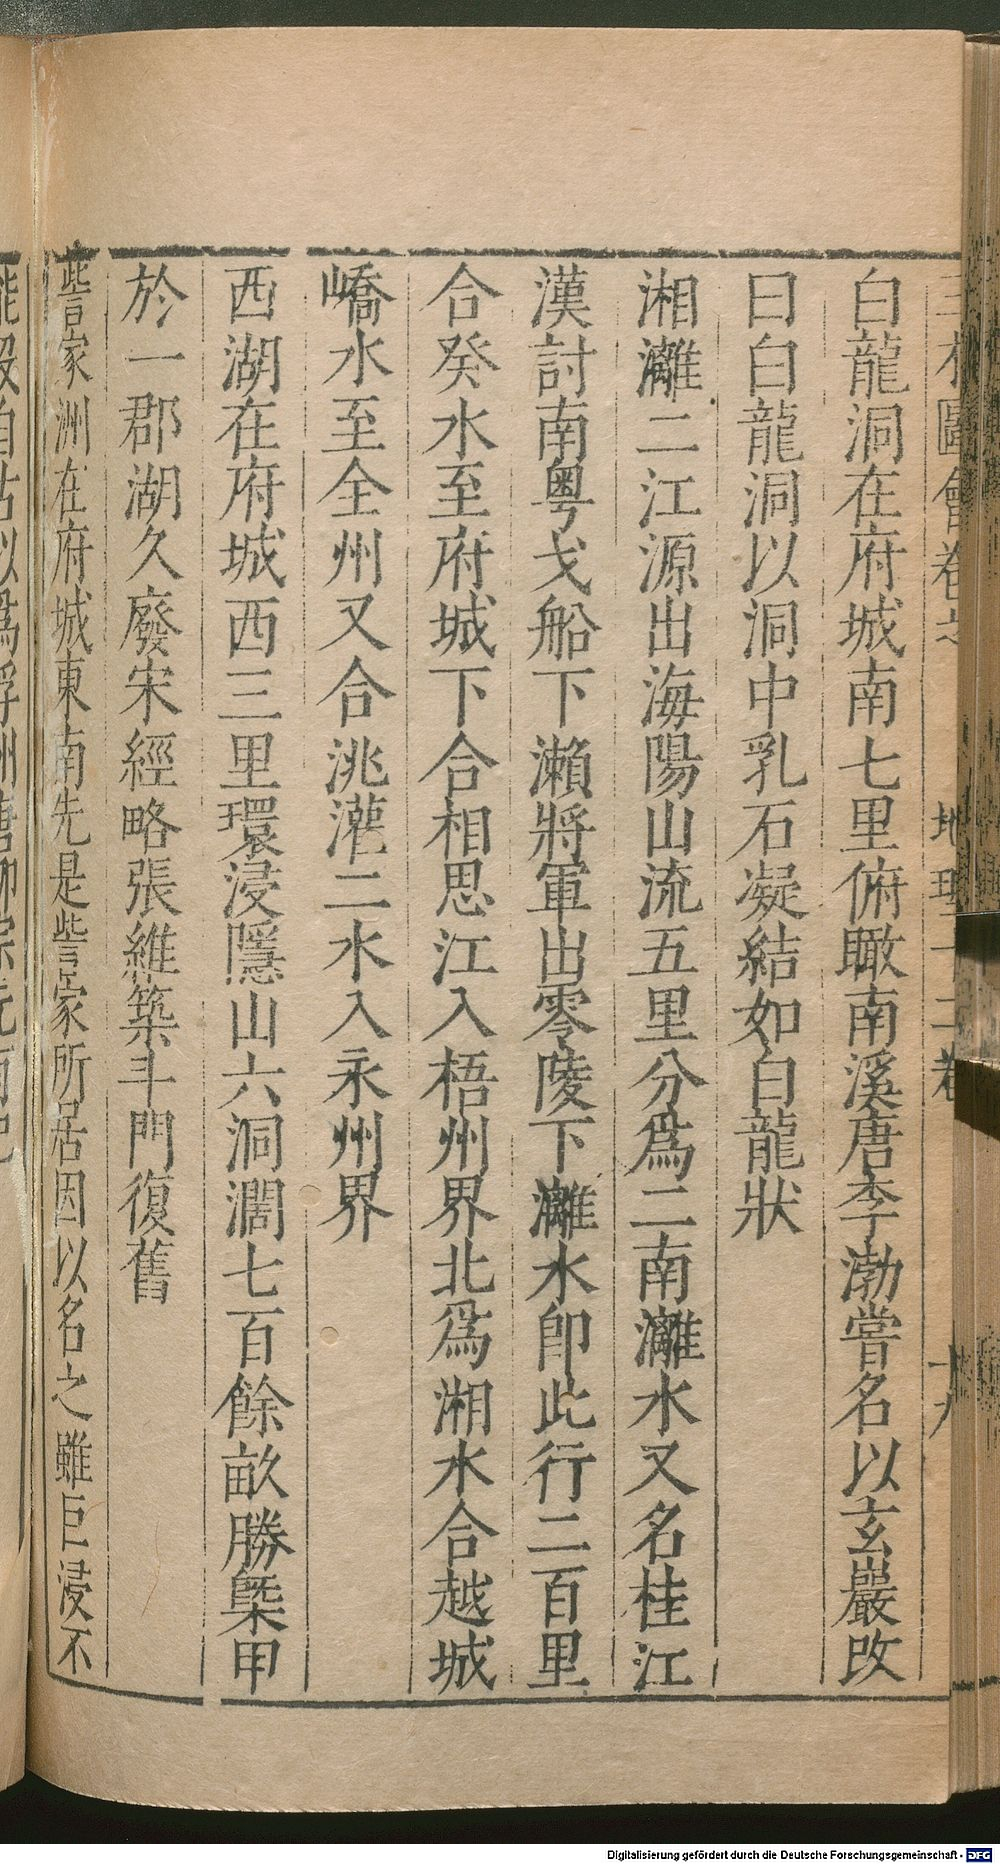 三才圖會卷之 地理十二卷 十九
白龍洞在府城南七里俯瞰南溪唐李渤嘗名以玄巖改
曰白龍洞以洞中乳石凝結如白龍狀
湘灕二江源出海陽山流五里分爲二南灕水又名桂江
漢討南粤戈船下瀨將軍出零陵下灕水卽此行二百里
合癸水至府城下合相思江入梧州界北爲湘水合越城
嶠水至全州又合洮灌二水入永州界
西湖在府城西三里環浸隱山六洞濶七百餘畝勝槩甲
於一郡湖久廢宋經略張維築斗門復舊
訾家洲在府城東南先是訾家所居因以名之雖巨浸不
能沒自古以爲浮洲唐柳宗元有記
Digitalisierung gefördert durch die Deutsche Forschungsgemeinschaft - DFG